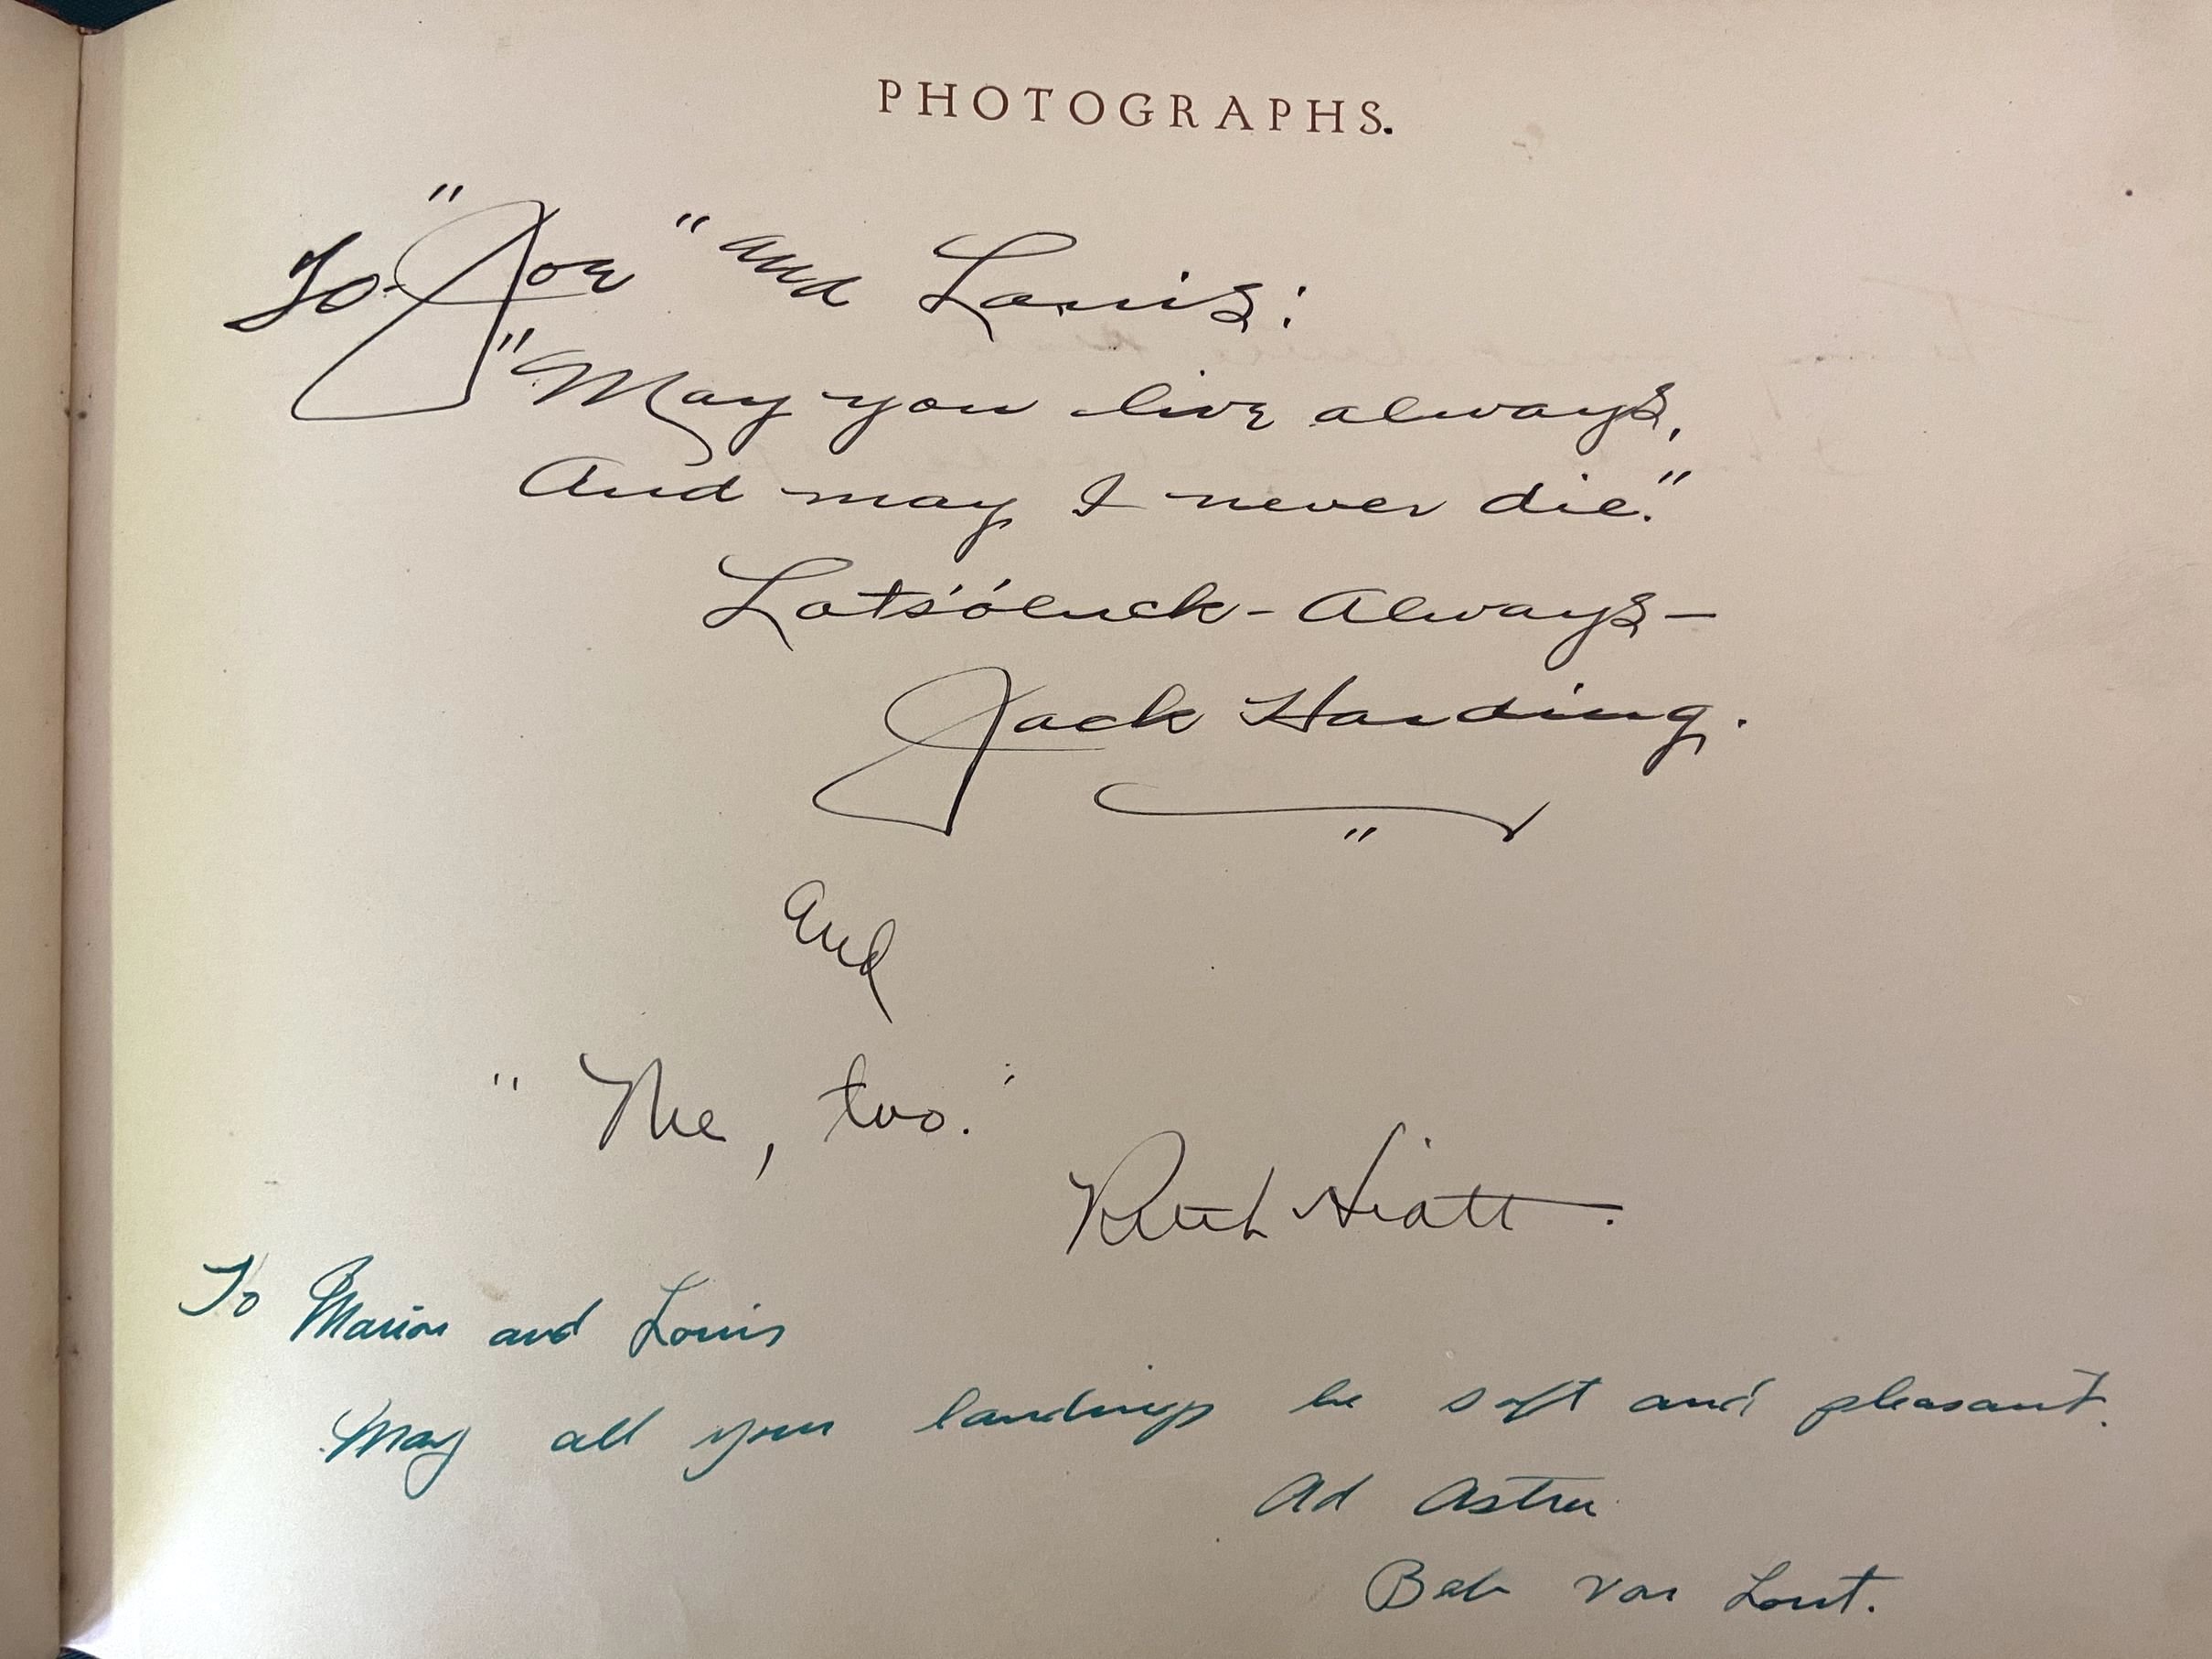 PHOTOGRAPHS.
To "Joe" and Louis:
"May you live always,
And may I never die."
Lots'o'luck - Always -
Jack Harding.
"
and
"Me, too."
Ruth Hiatt.
To Marion and Louis
May all your landings be soft and pleasant.
Ad Astra
Bob van